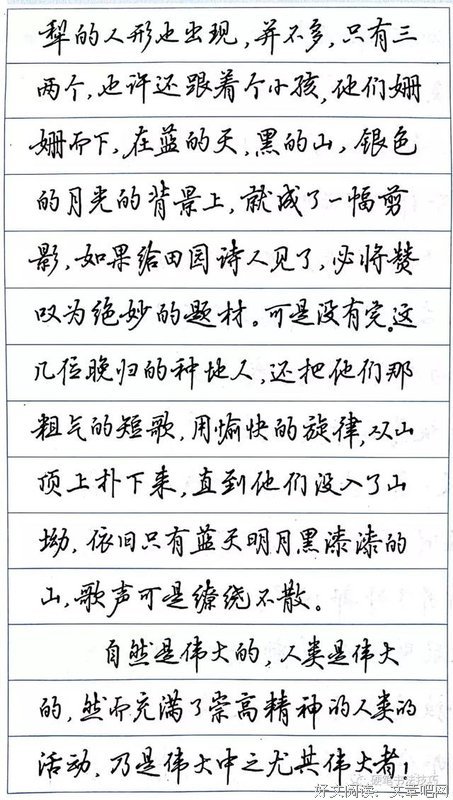 犁的人形也出现,并不多,只有三
两个,也许还跟着个小孩,他们姗
姗而下,在蓝的天,黑的山,银色
的月光的背景上,就成了一幅剪
影,如果给田园诗人见了,必将赞
叹为绝妙的题材。可是没有完。这
几位晚归的种地人,还把他们那
粗气的短歌,用愉快的旋律,从山
顶上扑下来,直到他们没入了山
坳,依旧只有蓝天明月黑漆漆的
山,歌声可是缭绕不散。
自然是伟大的,人类是伟大
的,然而充满了崇高精神的人类的
活动,乃是伟大中之尤其伟大者!
硬笔书法技巧
好文阅读:文章吧网